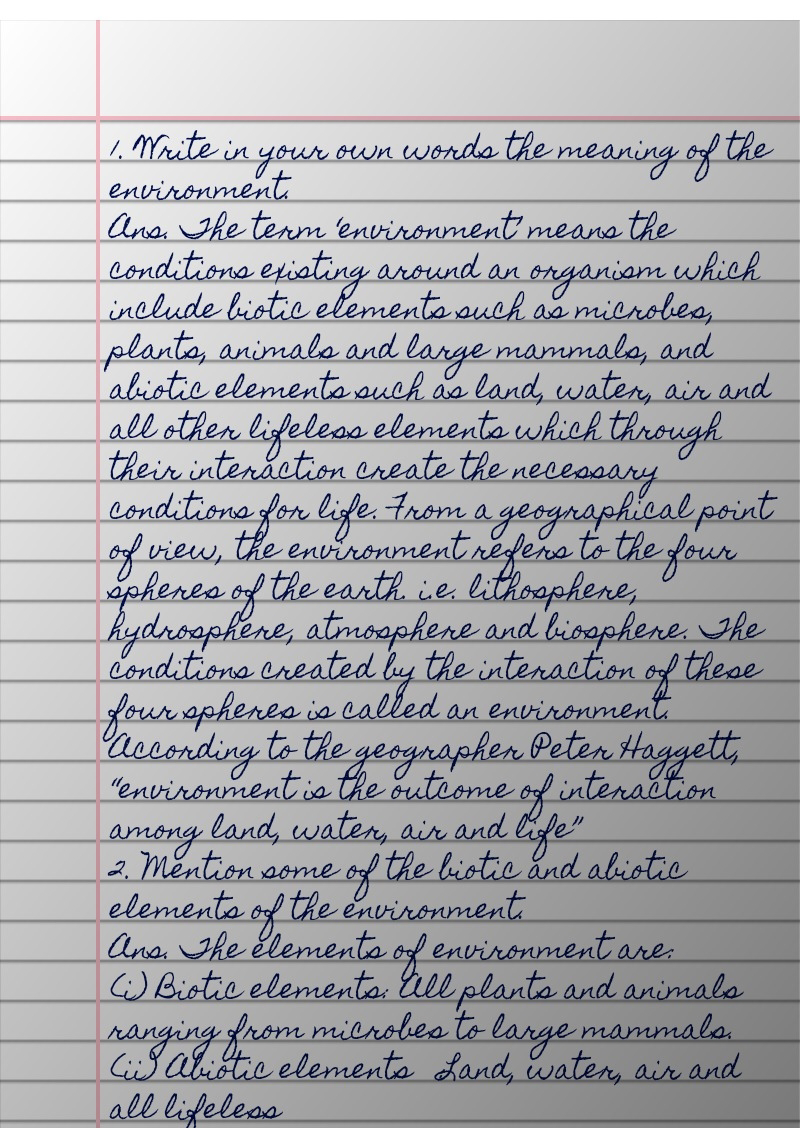 1. Write in your own words the meaning of the
environment.
Ans. The term 'environment' means the
conditions existing around an organism which
include biotic elements such as microbes,
plants, animals and large mammals, and
abiotic elements such as land, water, air and
all other lifeless elements which through
their interaction create the necessary
conditions for life. From a geographical point
of view, the environment refers to the four
spheres of the earth. i.e. lithosphere,
hydrosphere, atmosphere and biosphere. The
conditions created by the interaction of these
four spheres is called an environment.
According to the geographer Peter Haggett,
"environment is the outcome of interaction
among land, water, air and life"
2. Mention some of the biotic and abiotic
elements of the environment.
Ans. The elements of environment are:
(i) Biotic elements: All plants and animals
ranging from microbes to large mammals.
(ii) Abiotic elements Land, water, air and
all lifeless